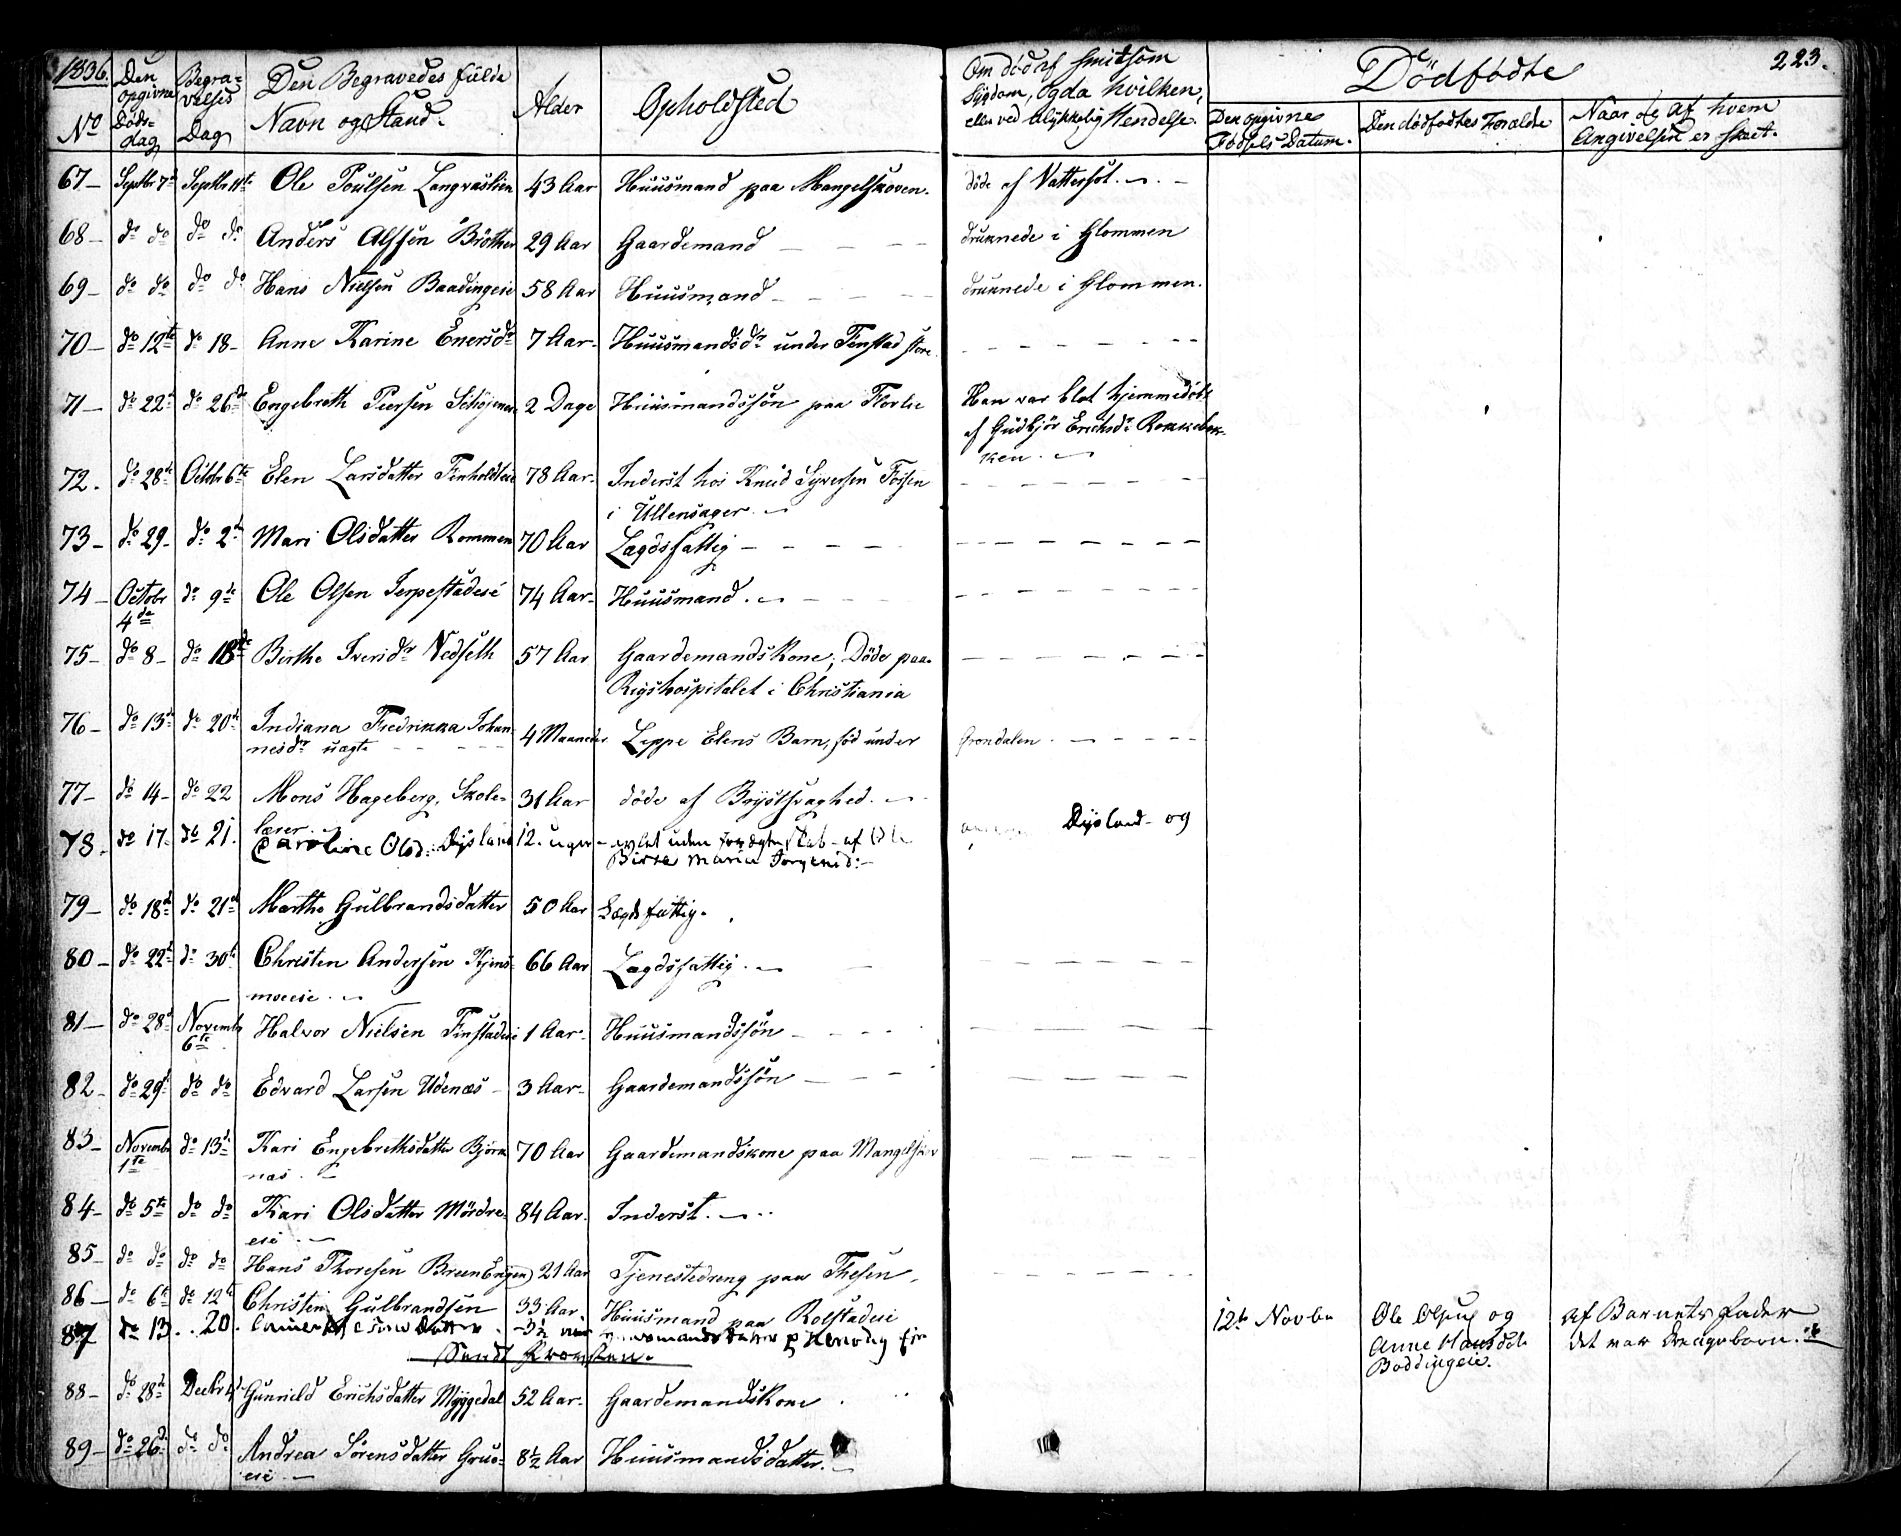 1836.
No
Den opgivne Døds-dag
Begra-velses Dag
Den Begravedes fulde Navn og Stand.
Alder
Opholdsted
Om død af smitsom Sygdom, og da hvilken, eller ved ulykkelig Hendelse.
Dødfødte
223.
Den opgivne Fødsels Datum.
Den dødfødtes Forældre
Naar og af hvem Angivelsen er skeet.
67 - Septbr 7de Septbr 11te Ole Poulsen 43 Aar Huusmand paa Mangelskoven. døde af Vattersot.
68 - do do do do Anders Alfsen Bröther 29 Aar Gaardemand druknede i Glommen
69 - do do do do Hans Nielsen Baadingeie 58 Aar Huusmand druknede i Glommen.
70 - do 12te do 18 - Anne Karine Enersdr 7 Aar - Huusmandsdr under Finstad store
71 - do 22de do 26de Engebreth Peersen 2 Dage Huusmandssøn paa Han var blot hjemmedøbt
af Gudbjør Erichsdr Rokkebek-
ken.
72. do 28de Octbr 6te Elen Larsdatter Finholdteie 78 Aar - Inderst hos Knud Syversen Fossen
i Ullensager.
73 - do 29 - do 2de Mari Olsdatter Rommen 70 Aar Lægdsfattig
74 - Octobr do 9de Ole Olsen Serpestadeie 74 Aar - Huusmand.
4de
75 - do 8 - do 18de Birthe Iversdr Nedseth 57 Aar Gaardemandskone; Døde paa
Rigshospitalet i Christiania
76 - do 13de do 20de Indiana Fredrikka Johan- 4 Maaneder Leppe Elens Barn, fød under Grøndalen.
nesdr uægte
77 - do 14 - do 22 Mons Hageberg, Skole- 31 Aar døde af Brystsvaghed.
lærer.
78. do 17. do 21. Caroline Olsd: Dysland 12. uger - avlet uden for ægteskab - af Ole Dysland - og
Birte Maria Jorgensd: -
79 - do 18de do 21de Marthe Gulbrandsdatter 50 Aar Lægdsfattig.
80 - do 22de do 30te Christen Andersen Hjens- 66 Aar Lægdsfattig.
moeeie.
81 - do 28de Novembr Halvor Nielsen Finstadeie 1 Aar - Huusmandssøn
6te
82 - do 29de do do Edvard Larsen Udenæs - 3 Aar - Gaardemandssøn
83 - Novembr do 13de Kari Engebrethsdatter Björk- 70 Aar Gaardemandskone paa Mangelskov
1ste næs.
84 - do 5te do do Kari Olsdatter Mördre- 84 Aar. Inderst.
eie.
85 do do do do Hans Thoresen Breen Engen 21 Aar Tjenestedreng paa Thesen
86 - do 6te do 12te Christen Gulbrandsen 33 Aar Huusmand paa Rolstadeie
87 do 13. . 20. 3½
12te Novbr Ole Olsen og af Barnets Fader
Anne Hansdatr det var drengebarn.
Boddingeie.
88 - do 28de Decbr 4de Gunnild Erichsdatter Myggedal 52 Aar - Gaardemandskone
89 - do 26de do do Andrea Sörensdatter Grue- 8½ Aar Huusmandsdatter.
eie